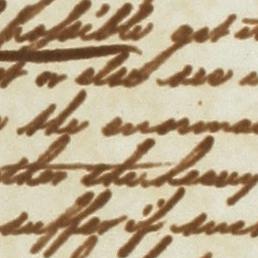 possible get it
t or else see a
the enorma
ther the heavy
suffer if such